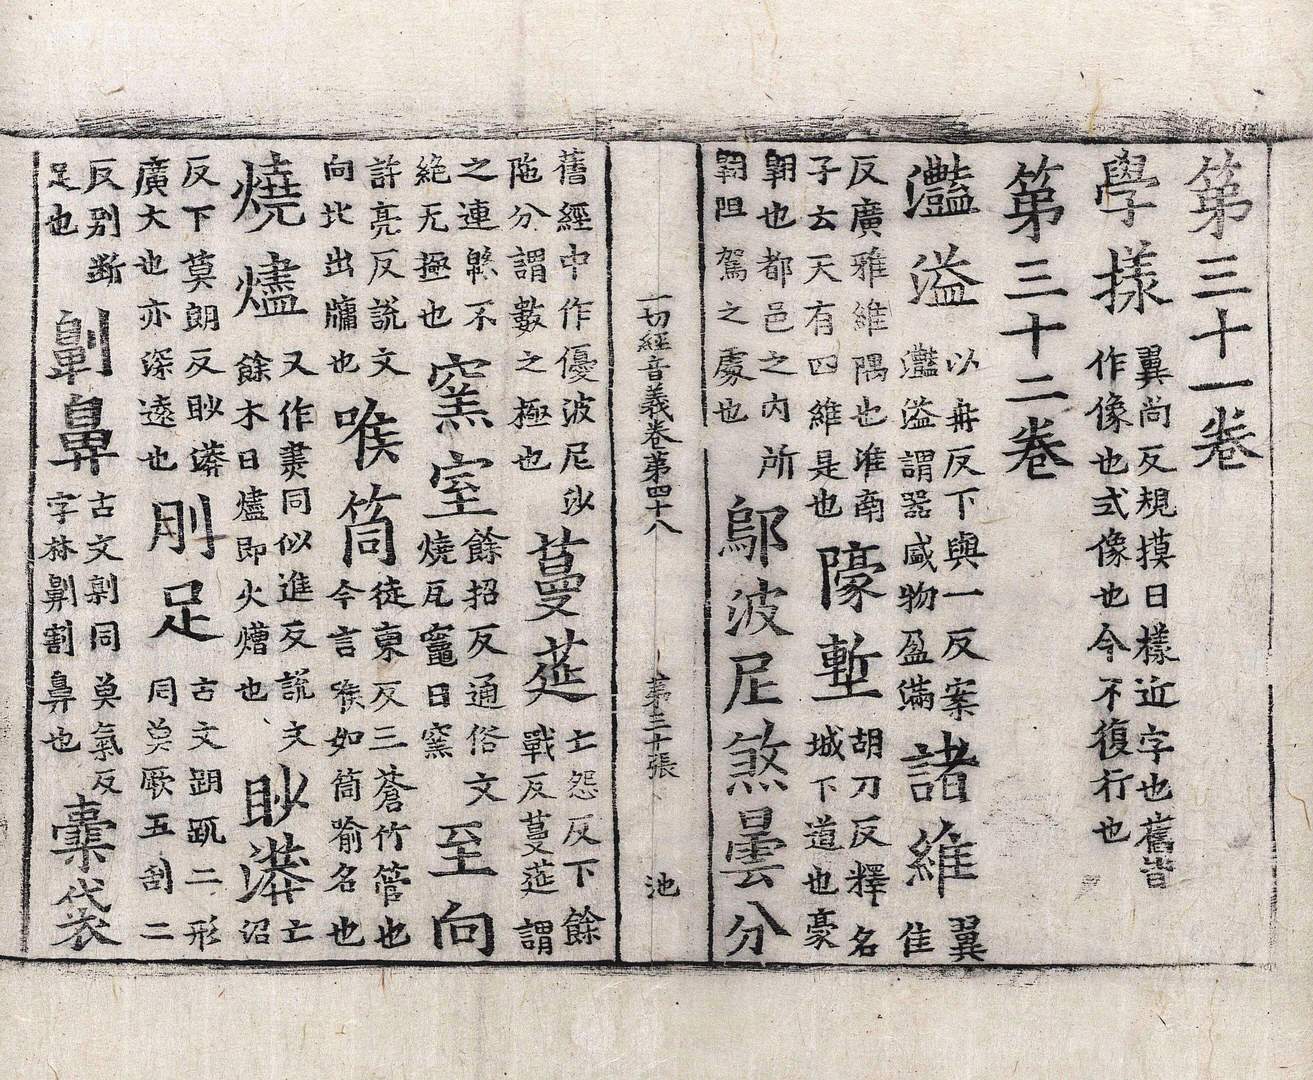 第三十一卷
學樣
翼尚反規摸曰樣近字也舊皆
作像也式像也今不復行也
第三十二卷
灩溢
以冉反下與一反案
灩溢謂器盛物盈滿
諸維
翼
隹
反廣雅維隅也淮南
子云天有四維是也
𨼍塹
胡刀反釋名
城下道也豪
翱也都邑之內所
翱阻駕之處也
鄔波尼煞曇分
一切經音義卷第四十八 第三十張 池
舊經中作優波尼沙
陁分謂數之極也
蔓莚
亡怨反下餘
戰反蔓莚謂
之連緜不
絕无極也
窯室
餘招反通俗文
燒瓦竈曰窯
至向
許亮反說文
向北出牖也
喉筒
徒東反三蒼竹管也
今言喉如筒喻名也
燒燼
又作㶳同似進反說文
餘木曰燼即火㷮也
眇漭
亡
沼
反下莫朗反眇漭
廣大也亦深遠也
刖足
古文跀二形
同莫厥五刮二
反别斷
足也
劓鼻
古文劓同莫氣反
字林劓割鼻也
橐袋